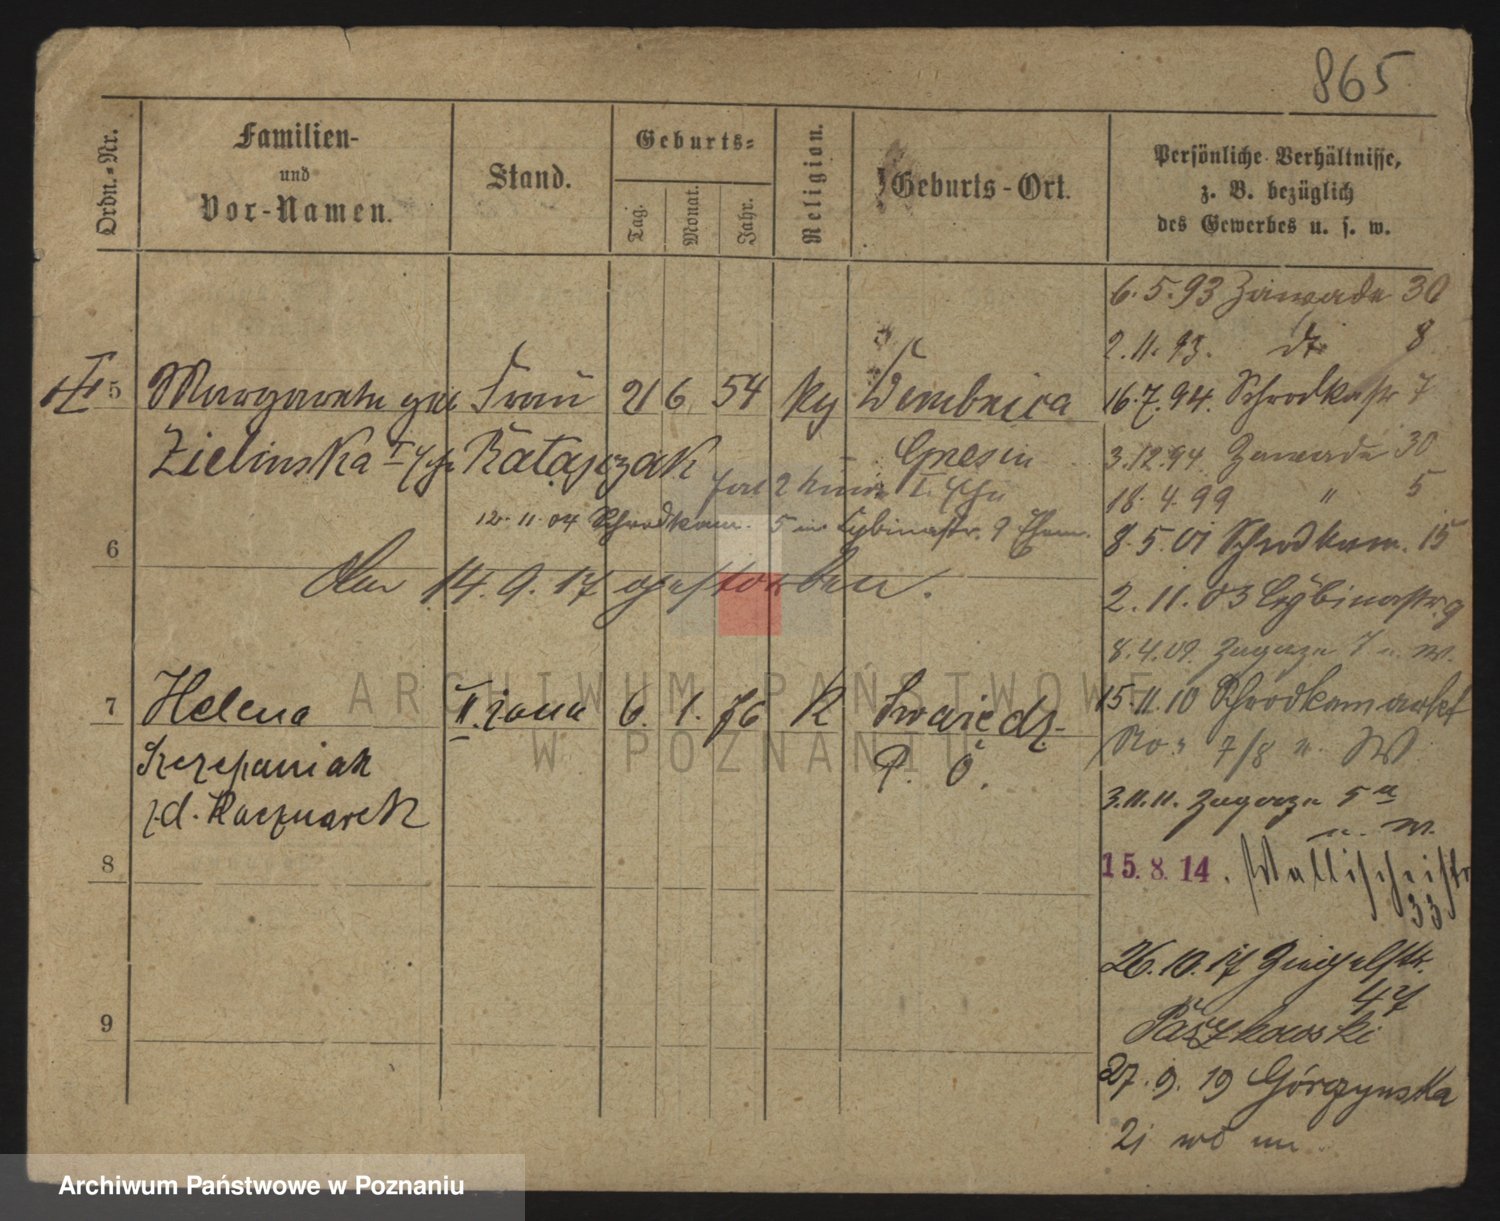 865
Ordn.-Nr.
Familien-
und
Vor-Namen.
Stand.
Geburts-
Tag.
Monat.
Jahr.
Religion.
Geburts-Ort.
Persönliche Verhältnisse,
z. B. bezüglich
des Gewerbes u. s. w.
6.5.93 Zawade 30
2.11.93. dto 8
5 Margarethe geb Frau 21 6 54 Wembnica
16.7.94. Schrodkastr 7
Zielinska Ratajczak Gnesen
3.12.94 Zawade 30
18.4.99 " 5
12.11.04 Schrodkam. 5
8.5.01 Schrodkam. 15
6
Am 14.9.17 gestorben.
2.11.03 Cybinastr. 9
8.4.09. Zagorze 7 u. W.
7 Helena II. żona 6. 1. 76 K Swarzędz
15.11.10 Schrodkamarkt
No 7/8 u. W
Szczepaniak
P. O.
3.11.11. Zagorze 5 a
z d. Kaczmarek
u. W.
8
15.8.14. Wallischeistr
33
26.10.17
47
Paszkowski
9
27.9.19 Górczynska
21
ARCHIWUM PAŃSTWOWE
W POZNANIU
Archiwum Państwowe w Poznaniu